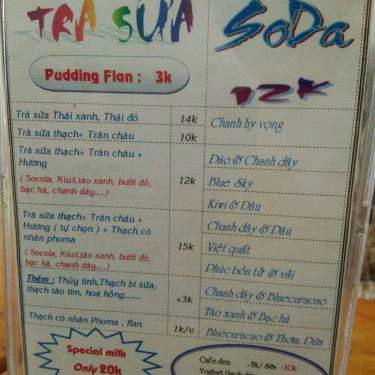 TRÀ SỮA
SoDa
Pudding Flan : 3k
12K
Trà sữa Thái xanh, Thái đỏ 14k
Chanh hy vọng
Trà sữa thạch+ Trân châu 10k
Trà sữa thạch+ Trân châu +
Hương
Đào & Chanh dây
( Socola, Kiwi,táo xanh, bưởi đỏ,
bạc hà, chanh dây.....) 12k
Blue Sky
Kiwi & Dâu
Trà sữa thạch+ Trân châu +
Hương ( tự chọn ) + Thạch có
nhân phoma 15k
Chanh dây & Dâu
Việt quất
( Socola, Kiwi,táo xanh, bưởi đỏ,
bạc hà, chanh dây.....)
Phúc bồn tử & vải
Thêm : Thủy tinh,Thạch bi sữa,
thạch táo tím, hoa hồng....... +3k
Chanh dây & Bluecuracao
Táo xanh & Bạc hà
Thạch có nhân Phoma , flan 1k/v
Bluecuracao & Thơm, Dứa
Special milk
Only 20k
Cafe đen : 8k/ sữa -10k